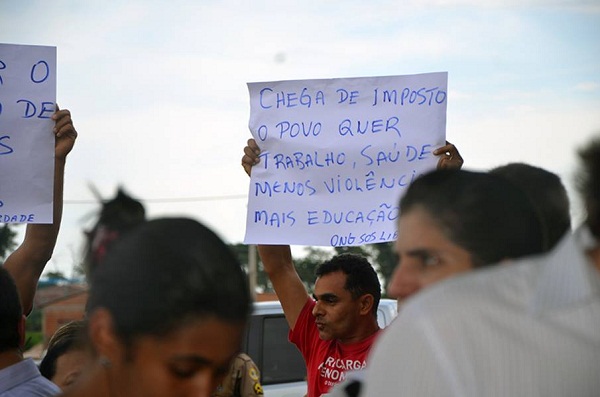 O
DE
S
DADE
CHEGA DE IMPOSTO
O POVO QUER
TRABALHO, SAÚDE
MENOS VIOLÊNCI
MAIS EDUCAÇÃO
ONG SOS LI